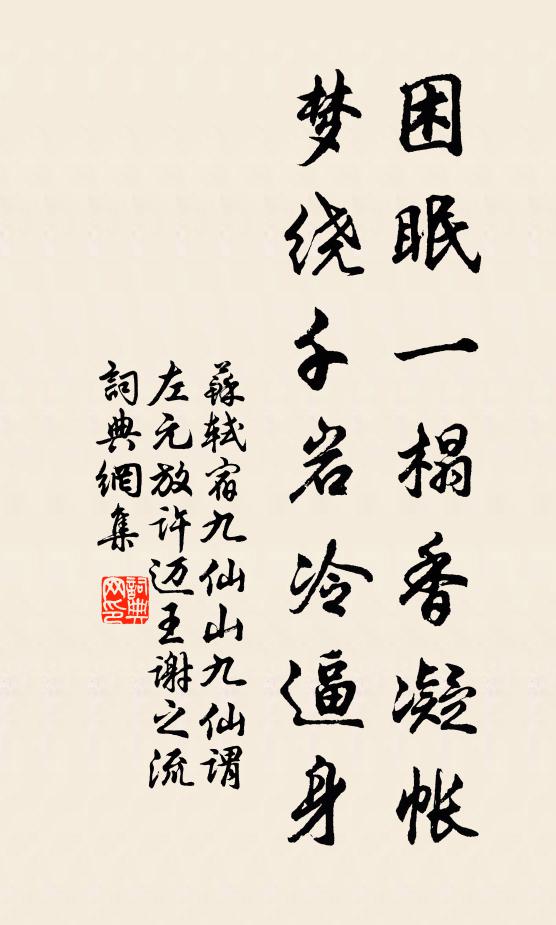 困眠一榻香凝帐
梦绕千岩冷逼身
蘇轼宿九仙山九仙谓
左元放许迈王谢之流
詞典網集
詞典